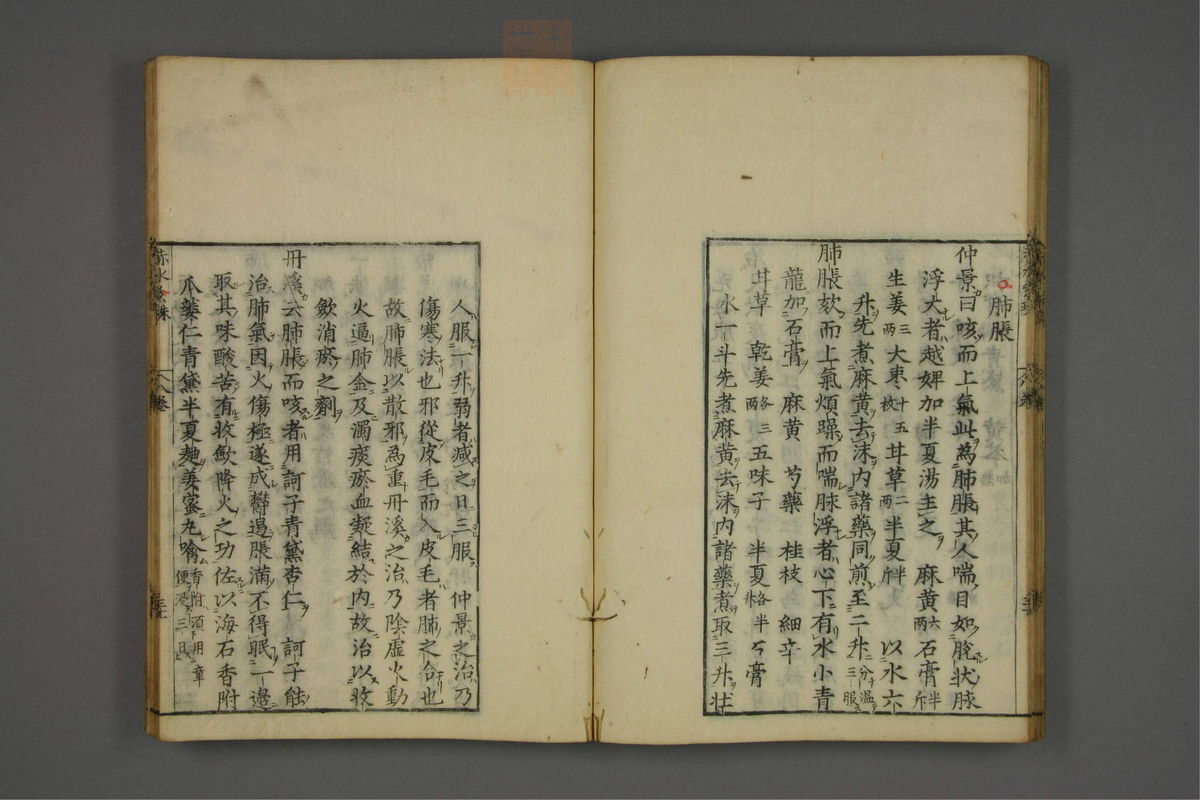 肺脹
仲景曰咳而上氣此為肺脹其人喘目如脫狀脉
浮大者越婢加半夏湯主之 麻黄六両石膏半斤
生姜三両大枣十五枚甘草二両半夏半升 以水六
升先煮麻黄去沫内諸藥同煎至二升分温三服
肺脹欬而上氣煩躁而喘脉浮者心下有水小青
龍加石膏 麻黄 芍藥 桂枝 細辛
甘草 乾姜各三両五味子 半夏各半升石膏
水一斗先煮麻黄去沫内諸藥煮取三升壮
人服一升弱者减之日三服 仲景之治乃
傷寒法也邪從皮毛而入皮毛者肺之合也
故肺脹以散邪為重丹溪之治乃陰虚火動
火逼肺金及濁痰瘀血凝結於内故治以收
歛消瘀之劑
丹溪云肺脹而咳者用訶子青黛杏仁 訶子能
治肺氣因火傷極遂成欝遏脹滿不得眠一邉
取其味酸苦有收歛降火之功佐以海石香附
瓜蔞仁青黛半夏麯姜蜜丸噙香附須用童便浸三日
赤水玄珠 八卷